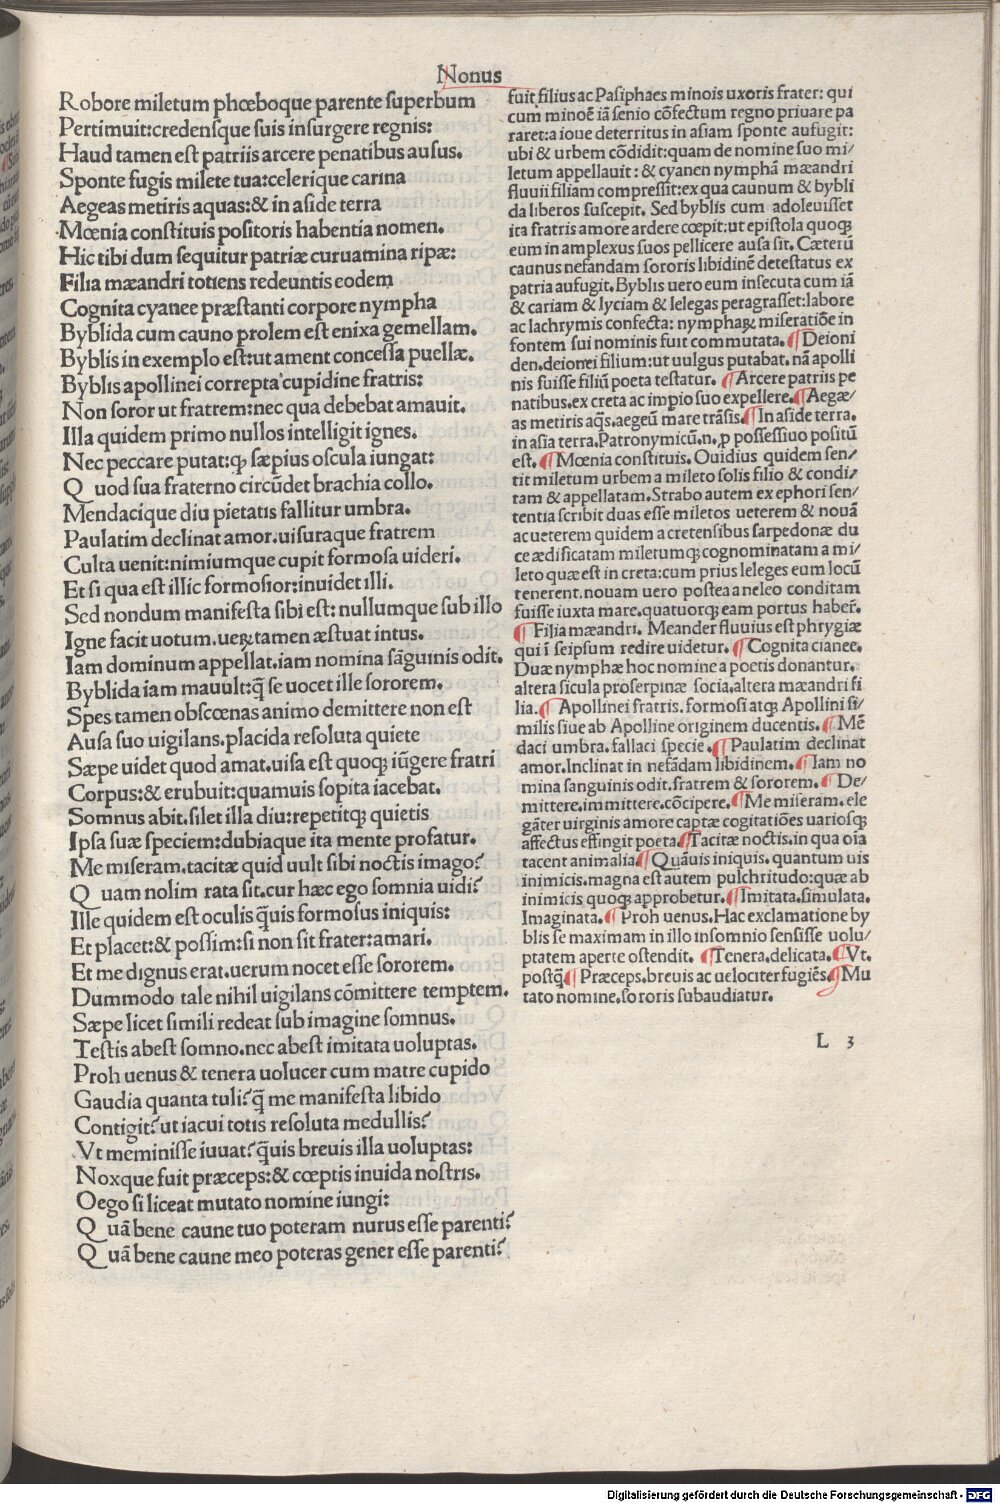 Nonus
Robore miletum phœboque parente superbum
Pertimuit:credensque suis insurgere regnis:
Haud tamen est patriis arcere penatibus ausus.
Sponte fugis milete tua:celerique carina
Aegeas metiris aquas:& in aside terra
Mœnia constituis positoris habentia nomen.
Hic tibi dum sequitur patriæ curuamina ripæ:
Filia mæandri totiens redeuntis eodem
Cognita cyanee præstanti corpore nympha
Byblida cum cauno prolem est enixa gemellam.
Byblis in exemplo est:ut ament concessa puellæ.
Byblis apollinei correpta cupidine fratris:
Non soror ut fratrem:nec qua debebat amauit.
Illa quidem primo nullos intelligit ignes.
Nec peccare putat:ꝙ sæpius oscula iungat:
Quod sua fraterno circūdet brachia collo.
Mendacique diu pietatis fallitur umbra.
Paulatim declinat amor.uisuraque fratrem
Culta uenit:nimiumque cupit formosa uideri.
Et si qua est illic formosior:inuidet illi.
Sed nondum manifesta sibi est: nullumque sub illo
Igne facit uotum.ueꝝ tamen æstuat intus.
Iam dominum appellat.iam nomina sāguinis odit.
Byblida iam mauult:q̄ se uocet ille sororem.
Spes tamen obscœnas animo demittere non est
Ausa suo uigilans.placida resoluta quiete
Sæpe uidet quod amat.uisa est quoqꝫ iūgere fratri
Corpus:& erubuit:quamuis sopita iacebat.
Somnus abit.silet illa diu:repetitqꝫ quietis
Ipsa suæ speciem:dubiaque ita mente profatur.
Me miseram.tacitæ quid uult sibi noctis imago?
Quam nolim rata sit.cur hæc ego somnia uidi?
Ille quidem est oculis q̄uis formosus iniquis:
Et placet:& possim:si non sit frater:amari.
Et me dignus erat.uerum nocet esse sororem.
Dummodo tale nihil uigilans cōmittere temptem.
Sæpe licet simili redeat sub imagine somnus.
Testis abest somno.nec abest imitata uoluptas.
Proh uenus & tenera uolucer cum matre cupido
Gaudia quanta tuli?q̄ me manifesta libido
Contigit?ut iacui totis resoluta medullis?
Vt meminisse iuuat?q̄uis breuis illa uoluptas:
Noxque fuit præceps:& cœptis inuida nostris.
O ego si liceat mutato nomine iungi:
Quā bene caune tuo poteram nurus esse parenti?
Quā bene caune meo poteras gener esse parenti?
fuit filius ac Pasiphaes minois uxoris frater: qui
cum minoē iā senio cōfectum regno priuare pa
raret:a ioue deterritus in asiam sponte aufugit:
ubi & urbem cōdidit:quam de nomine suo mi/
letum appellauit : & cyanen nymphā mæandri
fluuii filiam compressit:ex qua caunum & bybli
da liberos suscepit. Sed byblis cum adoleuisset
ita fratris amore ardere cœpit:ut epistola quoqꝫ
eum in amplexus suos pellicere ausa sit. Cæterū
caunus nefandam sororis libidinē detestatus ex
patria aufugit. Byblis uero eum insecuta cum iā
& cariam & lyciam & lelegas peragrasset:labore
ac lachrymis confecta: nymphaꝝ miseratiōe in
fontem sui nominis fuit commutata. ¶Deioni
den.deionei filium:ut uulgus putabat.nā apolli
nis fuisse filiū poeta testatur. ¶Arcere patriis pe
natibus.ex creta ac impio suo expellere.¶Aegæ/
as metiris aq̄s.aegeū mare trāsis.¶In aside terra.
in asia terra.Patronymicū.n.p possessiuo positū
est. ¶Mœnia constituis. Ouidius quidem sen/
tit miletum urbem a mileto solis filio & condi/
tam & appellatam.Strabo autem ex ephori sen/
tentia scribit duas esse miletos ueterem & nouā
ac ueterem quidem a cretensibus sarpedonæ du
ce ædificatam miletumqꝫ cognominatam a mi/
leto quæ est in creta:cum prius leleges eum locū
tenerent.nouam uero postea a neleo conditam
fuisse iuxta mare.quatuorqꝫ eam portus haber̄.
¶Filia mæandri. Meander fluuius est phrygiæ
qui ī seipsum redire uidetur. ¶Cognita cianee.
Duæ nymphæ hoc nomine a poetis donantur.
altera sicula proserpinæ socia.altera mæandri fi
lia.¶ Apollinei fratris. formosi atqꝫ Apollini si/
milis siue ab Apolline originem ducentis.¶ Mē
daci umbra. fallaci specie.¶Paulatim declinat
amor.Inclinat in nefādam libidinem.¶Iam no
mina sanguinis odit.fratrem & sororem.¶ De/
mittere.immittere.cōcipere.¶Me miseram.ele
gāter uirginis amore captæ cogitatiōes uariosqꝫ
affectus effingit poeta.¶Tacitæ noctis.in qua oīa
tacent animalia.¶Quāuis iniquis. quantum uis
inimicis.magna est autem pulchritudo:quæ ab
inimicis quoqꝫ approbetur.¶Imitata.simulata.
Imaginata.¶ Proh uenus.Hac exclamatione by
blis se maximam in illo insomnio sensisse uolu/
ptatem aperte ostendit. ¶Tenera.delicata.¶Vt.
postq̄¶ Præceps.breuis ac uelociter fugiēs.¶Mu
tato nomine.sororis subaudiatur.
L 3
Digitalisierung gefördert durch die Deutsche Forschungsgemeinschaft - DFG